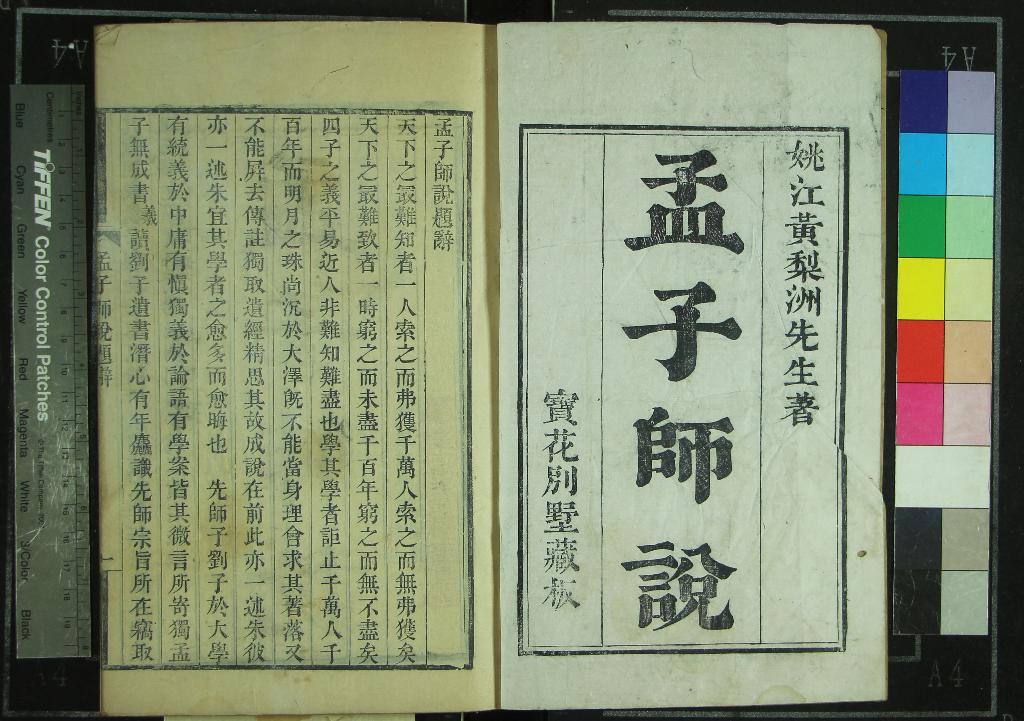 姚江黃梨洲先生著
孟子師說
寶花別墅藏板
孟子師說題辭
天下之最難知者一人索之而弗獲千萬人索之而無弗獲矣
天下之最難致者一時窮之而未盡千百年窮之而無不盡矣
四子之義平易近人非難知難盡也學其學者詎止千萬人千
百年而明月之珠尚沉於大澤旣不能當身理會求其著落又
不能屛去傳註獨取遺經精思其故成說在前此亦一述朱彼
亦一述朱宜其學者之愈多而愈晦也 先師子劉子於大學
有統義於中庸有愼獨義於論語有學案皆其微言所寄獨孟
子無成書羲讀劉子遺書潛心有年麤識先師宗旨所在竊取
孟子師說題辭
一
TIFFEN Color Control Patches
Centimetres
Inches
Blue
Cyan
Green
Yellow
Red
Magenta
White
3/Color
Black
A4
A4
A4
A4